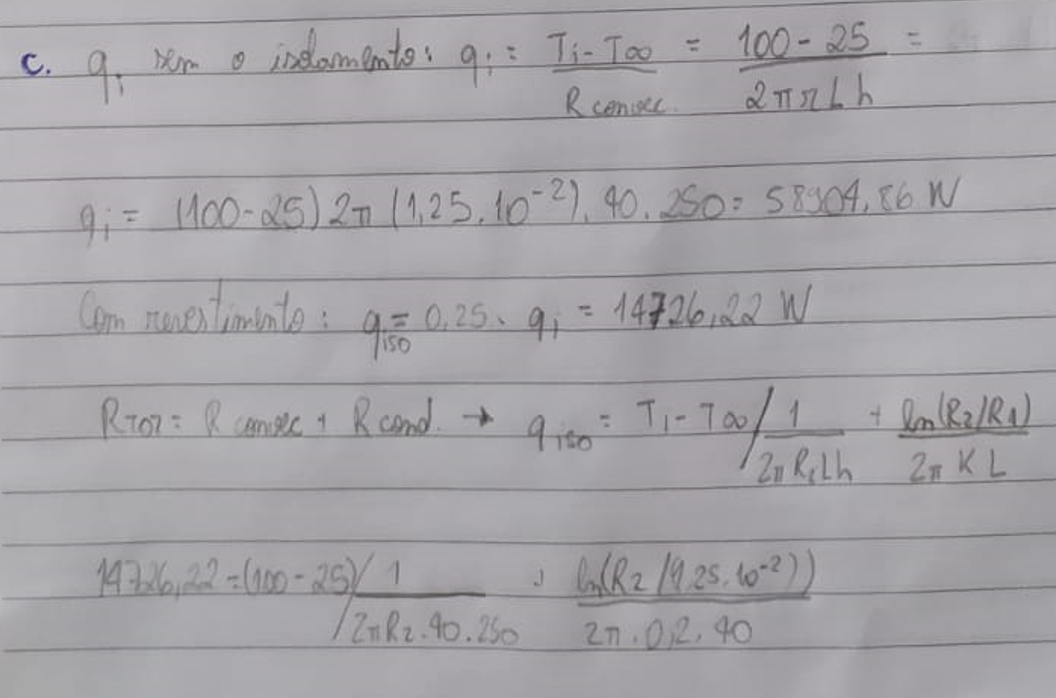 c. qi sem o isolamento: qi = Ti - T∞ / R convec. = 100 - 25 / 2πrLh =
qi = (100-25) 2π (1,25.10^-2). 40. 250 = 58904,86 W
Com revestimento: qiso = 0,25. qi = 14726,22 W
RTOT = R convec + R cond. → qiso = Ti - T∞ / 1/2πR2Lh + ln(R2/R1)/2π K L
14726,22 = (100 - 25) / 1/2πR2.40.250 + ln(R2/(1,25.10^-2))/2π.0,2.40